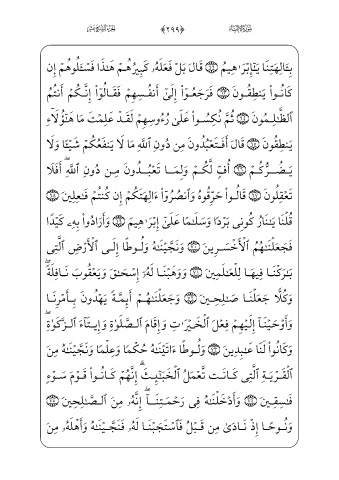 سورة الأنبياء ﴿٢٩٩﴾ الجزء السابع عشر
بِـَٔالِهَتِنَا يَـٰٓإِبْرَٰهِيمُ ﴿٦٢﴾ قَالَ بَلْ فَعَلَهُۥ كَبِيرُهُمْ هَـٰذَا فَسْـَٔلُوهُمْ إِن
كَانُوا۟ يَنطِقُونَ ﴿٦٣﴾ فَرَجَعُوٓا۟ إِلَىٰٓ أَنفُسِهِمْ فَقَالُوٓا۟ إِنَّكُمْ أَنتُمُ
ٱلظَّـٰلِمُونَ ﴿٦٤﴾ ثُمَّ نُكِسُوا۟ عَلَىٰ رُءُوسِهِمْ لَقَدْ عَلِمْتَ مَا هَـٰٓؤُلَآءِ
يَنطِقُونَ ﴿٦٥﴾ قَالَ أَفَتَعْبُدُونَ مِن دُونِ ٱللَّهِ مَا لَا يَنفَعُكُمْ شَيْـًٔا وَلَا
يَضُرُّكُمْ ﴿٦٦﴾ أُفٍّ لَّكُمْ وَلِمَا تَعْبُدُونَ مِن دُونِ ٱللَّهِ ۖ أَفَلَا
تَعْقِلُونَ ﴿٦٧﴾ قَالُوا۟ حَرِّقُوهُ وَٱنصُرُوٓا۟ ءَالِهَتَكُمْ إِن كُنتُمْ فَـٰعِلِينَ ﴿٦٨﴾
قُلْنَا يَـٰنَارُ كُونِى بَرْدًا وَسَلَـٰمًا عَلَىٰٓ إِبْرَٰهِيمَ ﴿٦٩﴾ وَأَرَادُوا۟ بِهِۦ كَيْدًا
فَجَعَلْنَـٰهُمُ ٱلْأَخْسَرِينَ ﴿٧٠﴾ وَنَجَّيْنَـٰهُ وَلُوطًا إِلَى ٱلْأَرْضِ ٱلَّتِى
بَـٰرَكْنَا فِيهَا لِلْعَـٰلَمِينَ ﴿٧١﴾ وَوَهَبْنَا لَهُۥٓ إِسْحَـٰقَ وَيَعْقُوبَ نَافِلَةً ۖ
وَكُلًّا جَعَلْنَا صَـٰلِحِينَ ﴿٧٢﴾ وَجَعَلْنَـٰهُمْ أَئِمَّةً يَهْدُونَ بِأَمْرِنَا
وَأَوْحَيْنَآ إِلَيْهِمْ فِعْلَ ٱلْخَيْرَٰتِ وَإِقَامَ ٱلصَّلَوٰةِ وَإِيتَآءَ ٱلزَّكَوٰةِ ۖ
وَكَانُوا۟ لَنَا عَـٰبِدِينَ ﴿٧٣﴾ وَلُوطًا ءَاتَيْنَـٰهُ حُكْمًا وَعِلْمًا وَنَجَّيْنَـٰهُ مِنَ
ٱلْقَرْيَةِ ٱلَّتِى كَانَت تَّعْمَلُ ٱلْخَبَـٰٓئِثَ ۗ إِنَّهُمْ كَانُوا۟ قَوْمَ سَوْءٍ
فَـٰسِقِينَ ﴿٧٤﴾ وَأَدْخَلْنَـٰهُ فِى رَحْمَتِنَآ ۖ إِنَّهُۥ مِنَ ٱلصَّـٰلِحِينَ ﴿٧٥﴾
وَنُوحًا إِذْ نَادَىٰ مِن قَبْلُ فَٱسْتَجَبْنَا لَهُۥ فَنَجَّيْنَـٰهُ وَأَهْلَهُۥ مِنَ